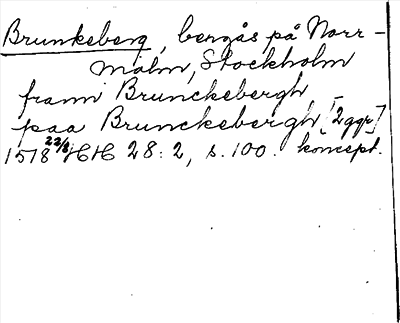 Brunkeberg, bergås på Norr-
malm, Stockholm
framÌ Brunckebergh
paa Brunckebergh [2 ggr]
1518 22/8 HH 28:2, s. 100. koncept.